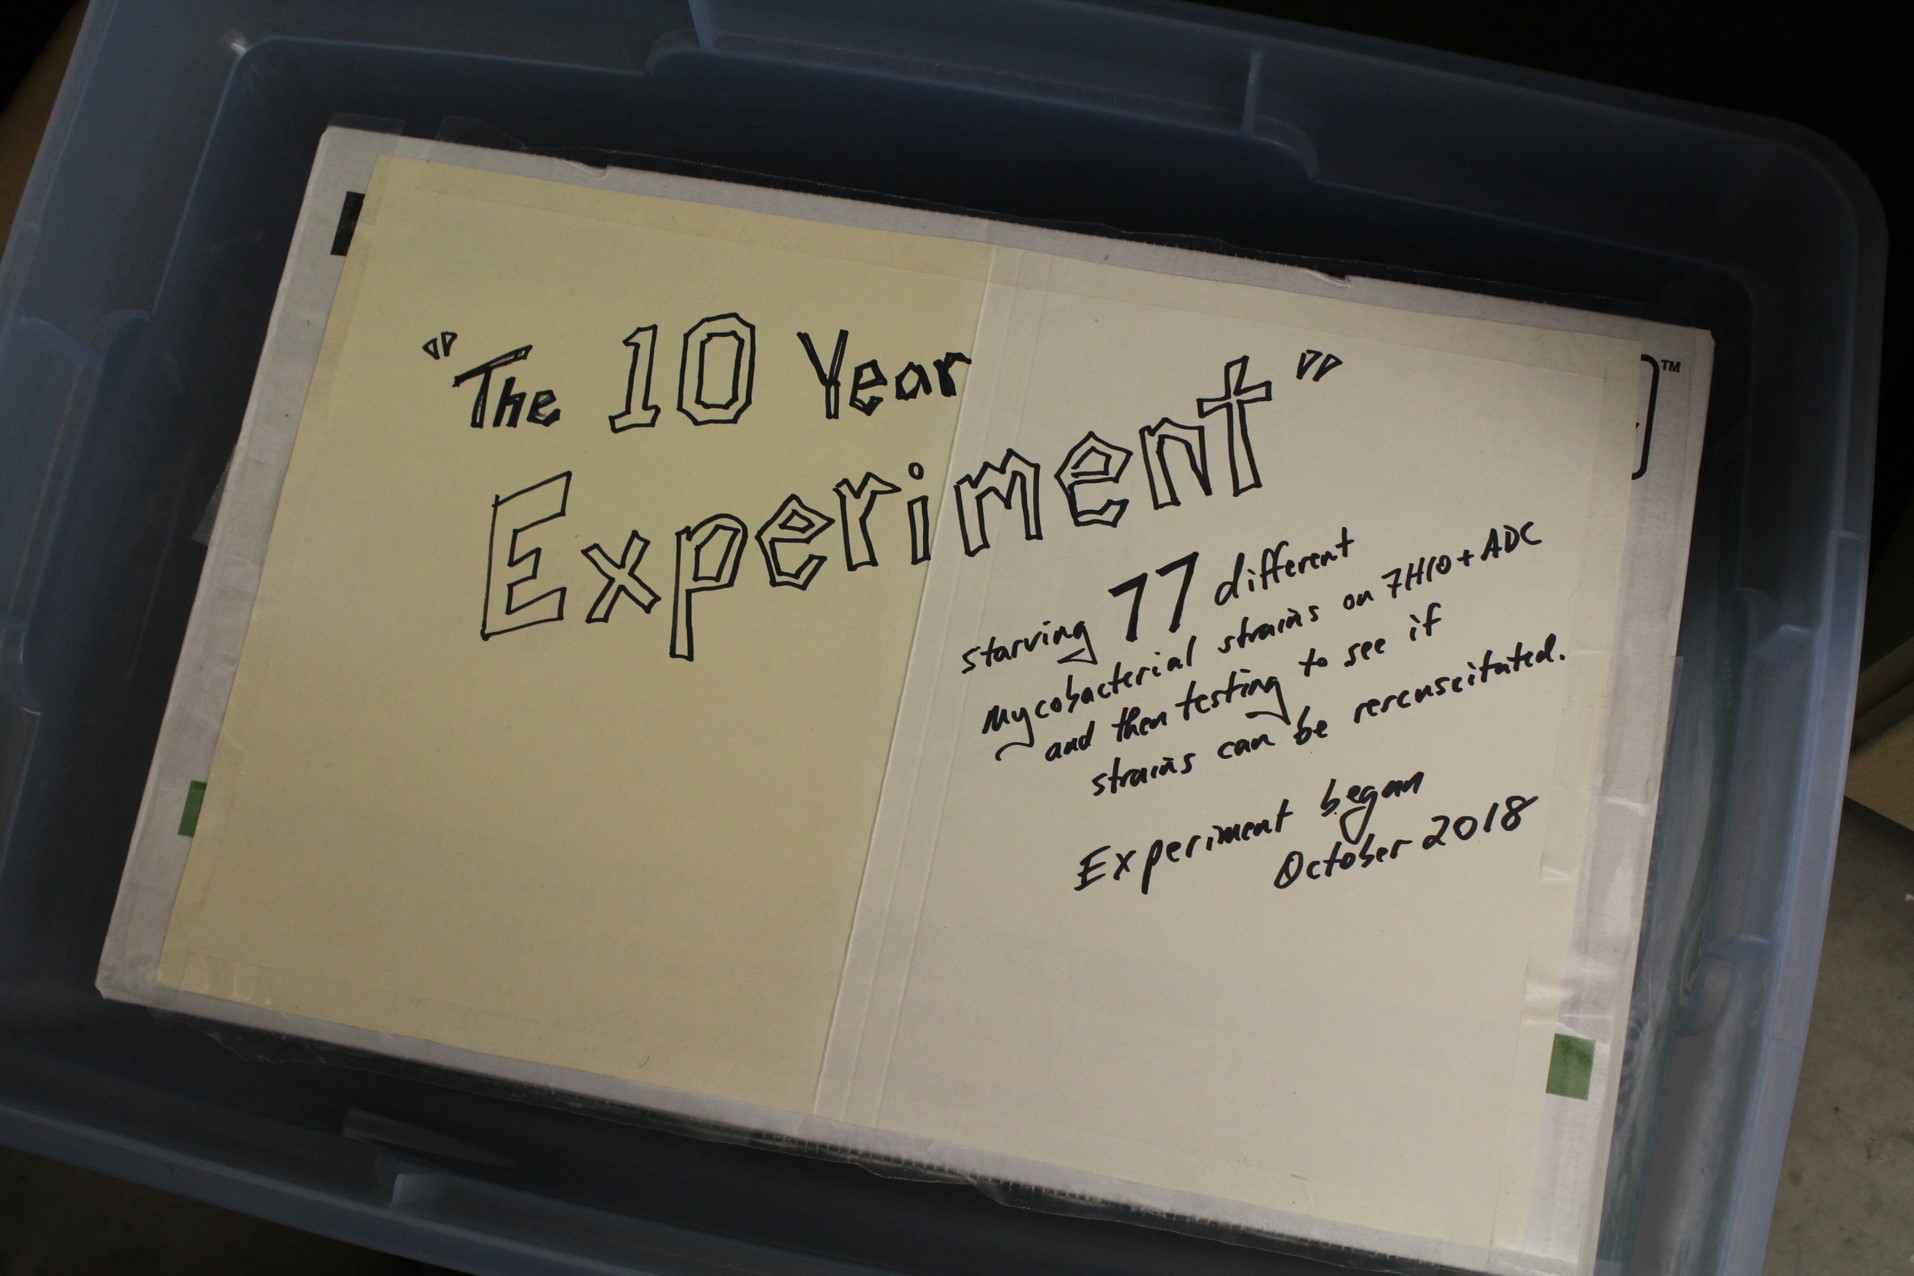 "The 10 Year
Experiment"
starving 77 different
mycobacterial strains on 7H10 + ADC
and then testing to see if
strains can be rercuscitated.
Experiment began
October 2018
TM